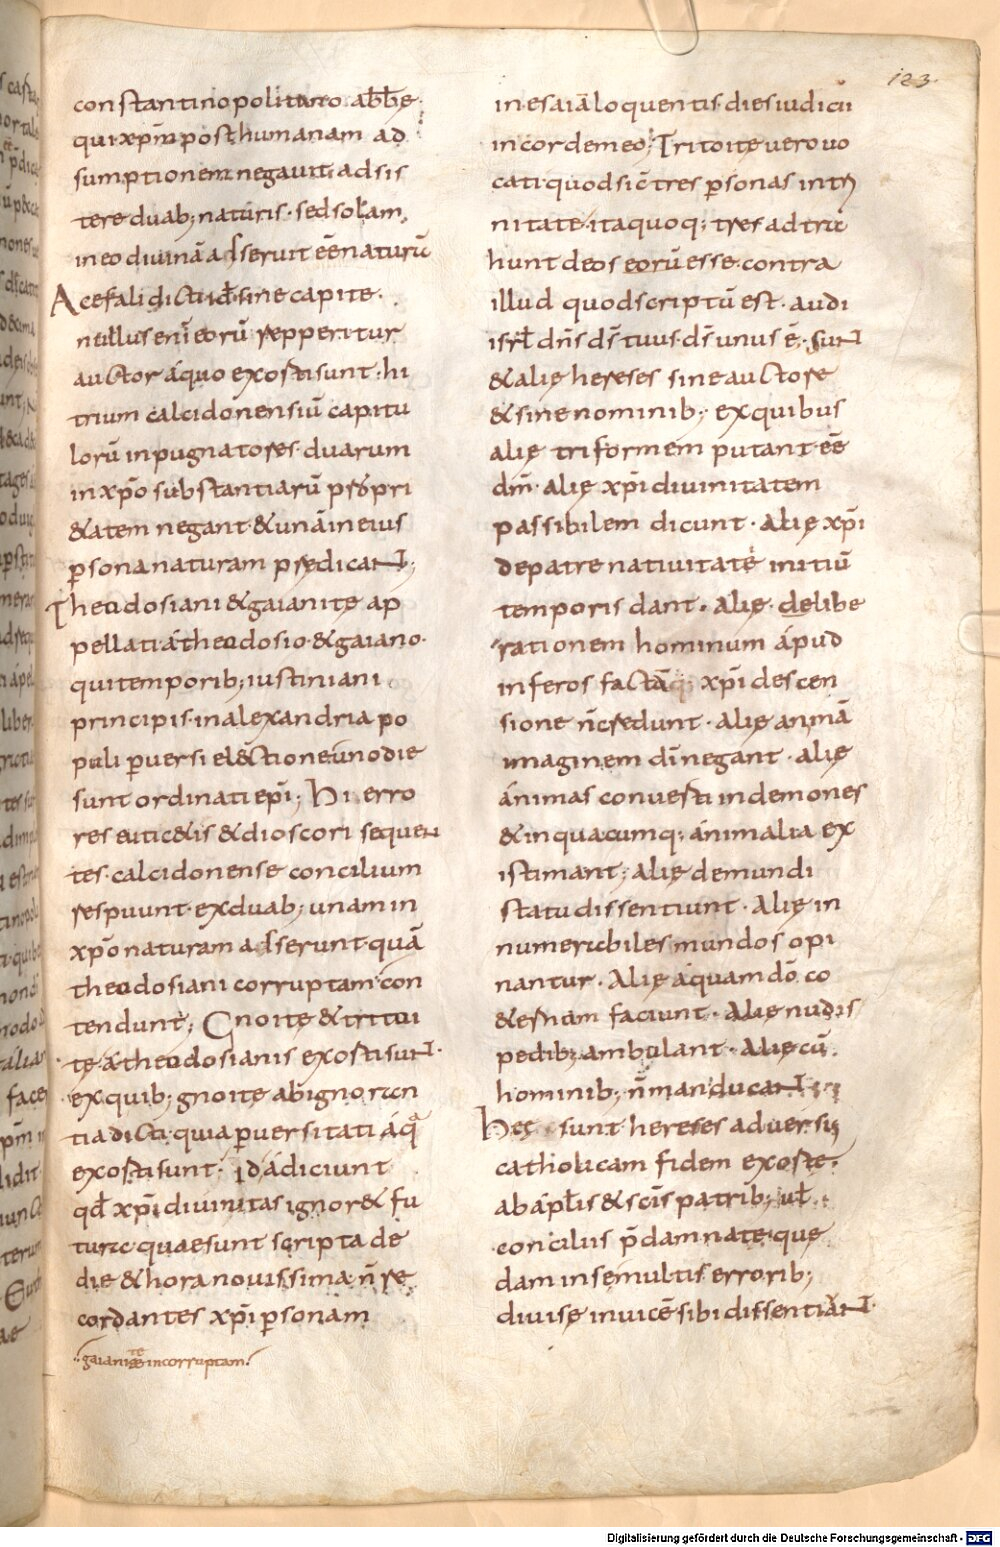 constantinopolitano abb̄ę
qui xp̄m post humanam ad
sumptionem negavit adsis
tere duab; naturis · sed solam
in eo divinā adserunt eē naturā
Acefali dicti id ē sine capite ·
nullus eni eorū repperitur
auctor á quo exosti sunt · hi
trium calcidonensiū capitu
lorū inpugnatores · duarum
in xp̄o substantiarū propri
&atem negant & unā in eius
p̄sona naturam prędicant;
Theodosiani & gaianitę ap
pellati á theodosio & gaiano ·
qui temporib; iustiniani
principis in alexandria po
puli p̄versi electione uno die
sunt ordinati ep̄i; Hi erro
res eutic&is & dioscori sequen
tes · calcidonense concilium
respuunt · ex duab; unam in
xp̄o naturam adserunt · quā
theodosiani corruptam con
tendunt; Gnoitę & tritoi
tę á theodosianis exosti sunt ·
ex quib; gnoitę ab ignoran
tia dicti · quia p̄versitati á q̄
exosti sunt · id ádiciunt
qd̄ xp̄i divinitas ignor& fu
tura · quae sunt scripta de
die & hora novissima n̄ re
cordantes xp̄i p̄sonam
gaianitę incorruptam
123
in esaia loquentis · dies iudicii
in corde meo; Tritoitę vero vo
cati · quod sic̄ tres p̄sonas in tri
nitate · ita quoq; tres ad tru
hunt deos eorū esse · contra
illud quod scriptū est · audi
isrl̄ dn̄s ds̄ tuus · ds̄ unus ē · sunt
& alię hereses sine auctore
& sine nominib; ex quibus
alię triformem putant eē
dm̄ · alię xp̄i divinitatem
passibilem dicunt · Alię xp̄i
de patre nativitate initiū
temporis dant · Alię · de libe
rationem hominum ápud
inferos factā xp̄i descen
sione n̄ credunt · Alię animā
imaginem dī negant · alię
ánimas conversti in demones
& in quacumq; ánimalia ex
istimant; Alię de mundi
statu dissentiunt · Alię in
numerabiles mundos opi
nantur · Alię áquam dō co
&ernam faciunt · Alię nudis
pedib; ambulant · Alię cū
hominib; n̄ manducant
Hęę sunt hereses adversus
catholicam fidem exostę
ab ápl̄is & scīs patrib; ul̄
conciliis p̄damnate · que
dam in se multis errorib;
divisę invicē sibi dissentiant ·
Digitalisierung gefördert durch die Deutsche Forschungsgemeinschaft - DFG